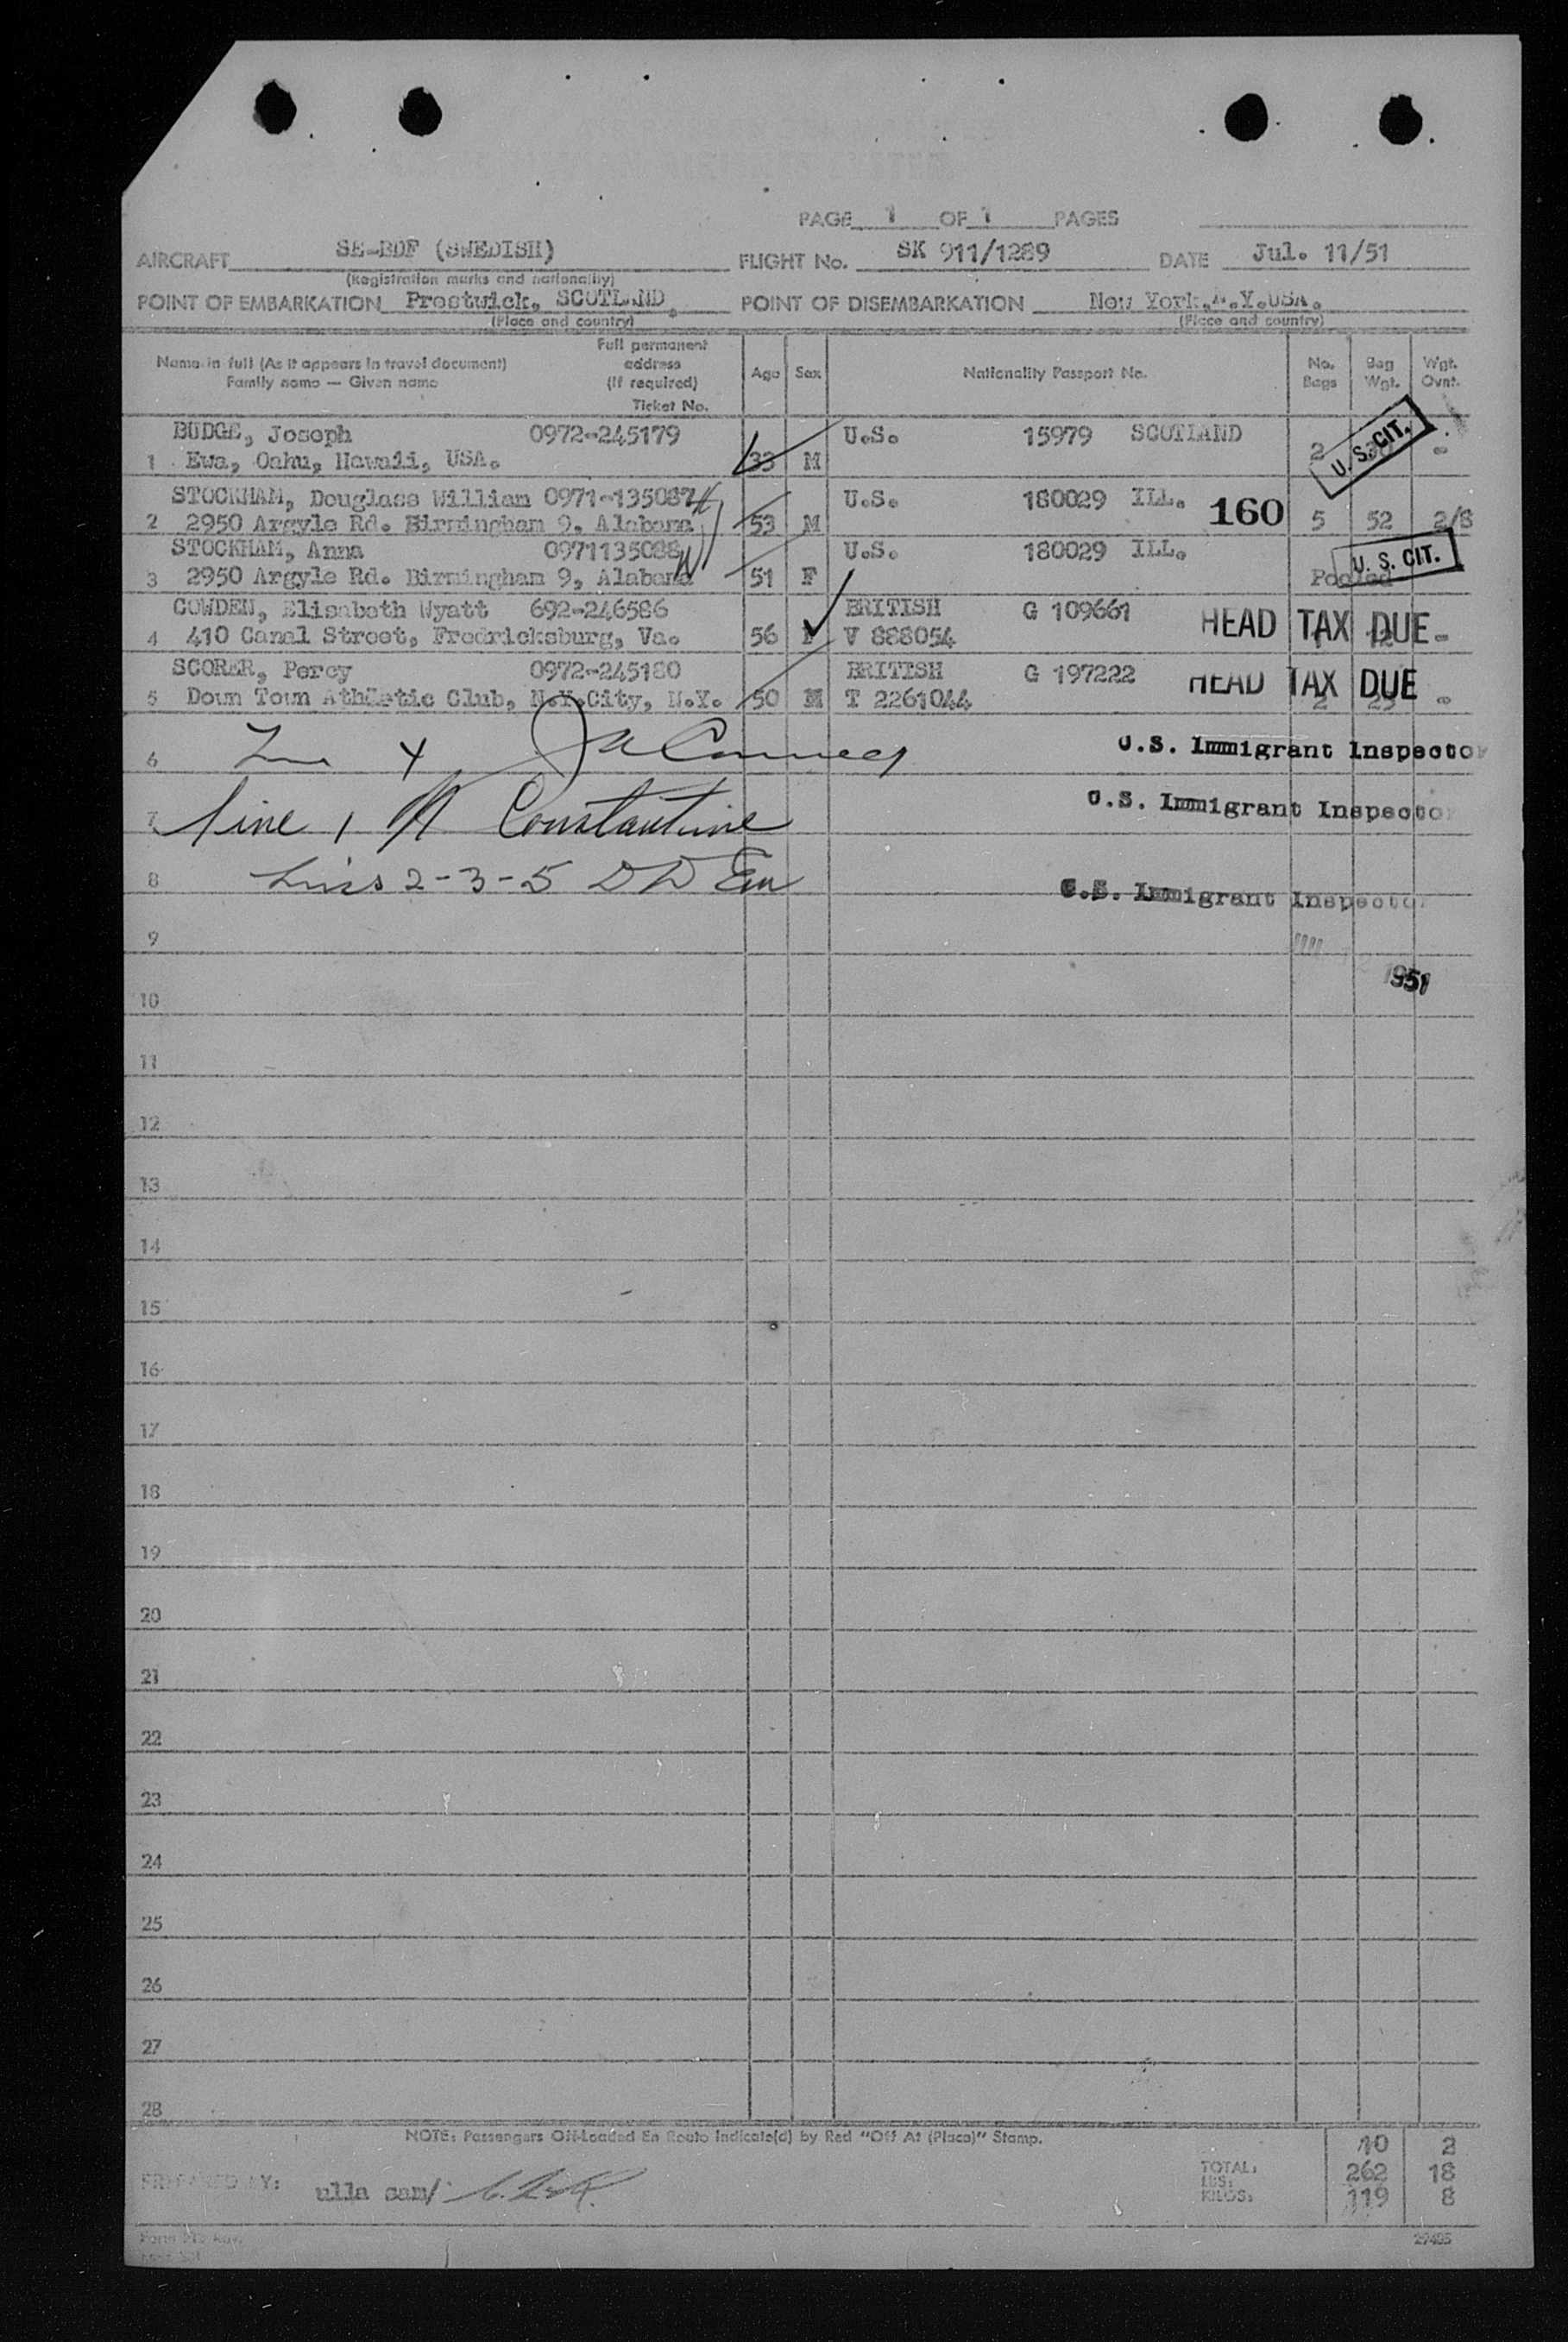 PAGE 1 OF 1 PAGES
AIRCRAFT SE-BDF (SWEDISH) FLIGHT No. SK 911/1289 DATE Jul. 11/51
(Registration marks and nationality)
POINT OF EMBARKATION Prestwick, SCOTLAND. POINT OF DISEMBARKATION New York,N.Y.USA.
(Place and country) (Place and country)
Name in full (As it appears in travel document)
Family name — Given name
Full permanent
address
(if required)
Ticket No.
Age Sex Nationality Passport No. No. Bags Bag Wgt. Wgt. Ovnt.
BUDGE, Joseph 0972-245179 U.S. 15979 SCOTLAND
1 Ewa, Oahu, Hawaii, USA. 33 M 2 -
U. S. CIT.
STOCKHAM, Douglass William 0971-135087 U.S. 180029 ILL. 160
2 2950 Argyle Rd. Birmingham 9, Alabama 53 M 5 52 2/8
STOCKHAM, Anna 0971135088 U.S. 180029 ILL. U. S. CIT.
3 2950 Argyle Rd. Birmingham 9, Alabama 51 F Pooled
COWDEN, Elisabeth Wyatt 692-246586 BRITISH G 109661 HEAD TAX DUE
4 410 Canal Street, Fredricksburg, Va. 56 F V 888054 -
SCORER, Percy 0972-245180 BRITISH G 197222 HEAD TAX DUE
5 Down Town Athletic Club, N.Y.City, N.Y. 50 M T 2261044 2 -
6 4 U.S. Immigrant Inspector
7 line 1 Constantine U.S. Immigrant Inspector
8 Lines 2-3-5 U.S. Immigrant Inspector
9
1951
10
11
12
13
14
15
16
17
18
19
20
21
22
23
24
25
26
27
28
NOTE: Passengers Off-Loaded En Route Indicate(d) by Red "Off At (Place)" Stamp.
10 2
TOTAL:
LBS: 262 18
KILOS: 119 8
PREPARED BY: ulla sam/
29485